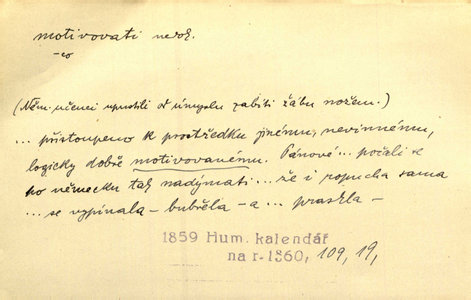 motivovati nedok.
-eo
(Něm. učenci upustili od úmyslu zabíti žábu nožem.)
... přistoupeno k prostředku jinému, nevinnému,
logicky dobře motivovanému. Pánové ... počali se
po německu tak nadýmati ... že i ropucha sama
... se vypínala – bubřela – a ... praskla –
1859 Hum. kalendář
na r. 1860, 109, 19,